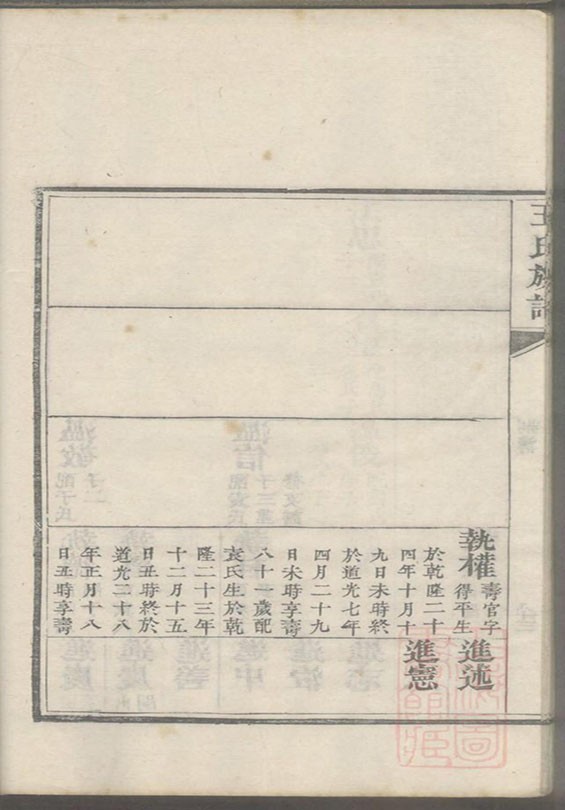 王氏族譜
執權
壽官字
得平生
於乾隆二十
四年十月十
九日未時終
於道光七年
四月二十九
日未時享壽
八十一歲配
袁氏生於乾
隆二十三年
十二月十五
日丑時終於
道光二十八
年正月十八
日丑時享壽
進述
進憲